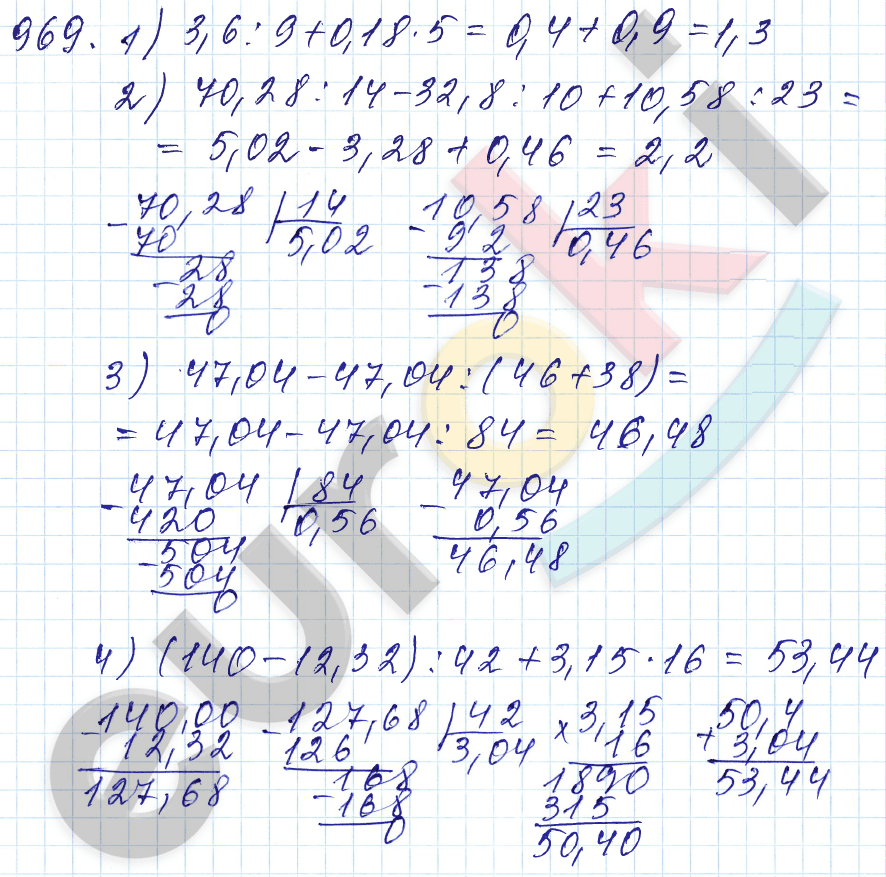 969. 1) 3,6 : 9 + 0,18 · 5 = 0,4 + 0,9 = 1,3
2) 70,28 : 14 - 32,8 : 10 + 10,58 : 23 =
= 5,02 - 3,28 + 0,46 = 2,2
- 70,28 | 14 - 10,58 | 23
70 5,02 92 0,46
- 28 - 138
28 138
0 0
3) 47,04 - 47,04 : (46 + 38) =
= 47,04 - 47,04 : 84 = 46,48
- 47,04 | 84 - 47,04
420 0,56 0,56
- 504 46,48
504
0
4) (140 - 12,32) : 42 + 3,15 · 16 = 53,44
- 140,00 - 127,68 | 42 × 3,15 + 50,4
12,32 126 3,04 16 3,04
127,68 168 1890 53,44
- 168 315
0 50,40
euroki